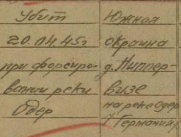 Убит
20.04.45г
при форсиро-
вании реки
Одер
Южная
окраина
д. Нипер-
визе
на реке Одер
Германии